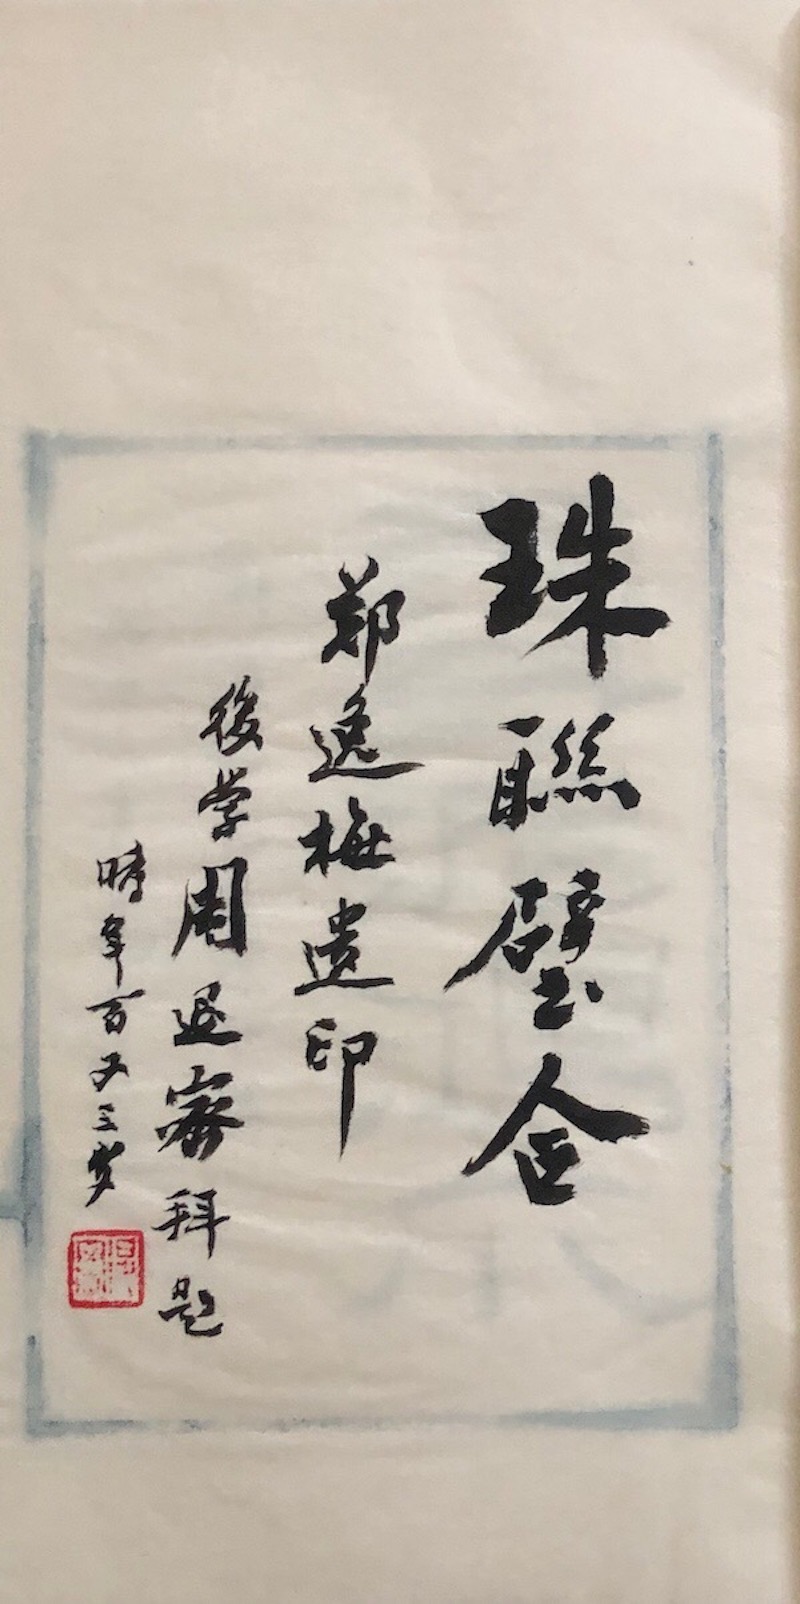 珠聯璧合
郑逸梅遺印
後学周退密拜題
時年百又三岁